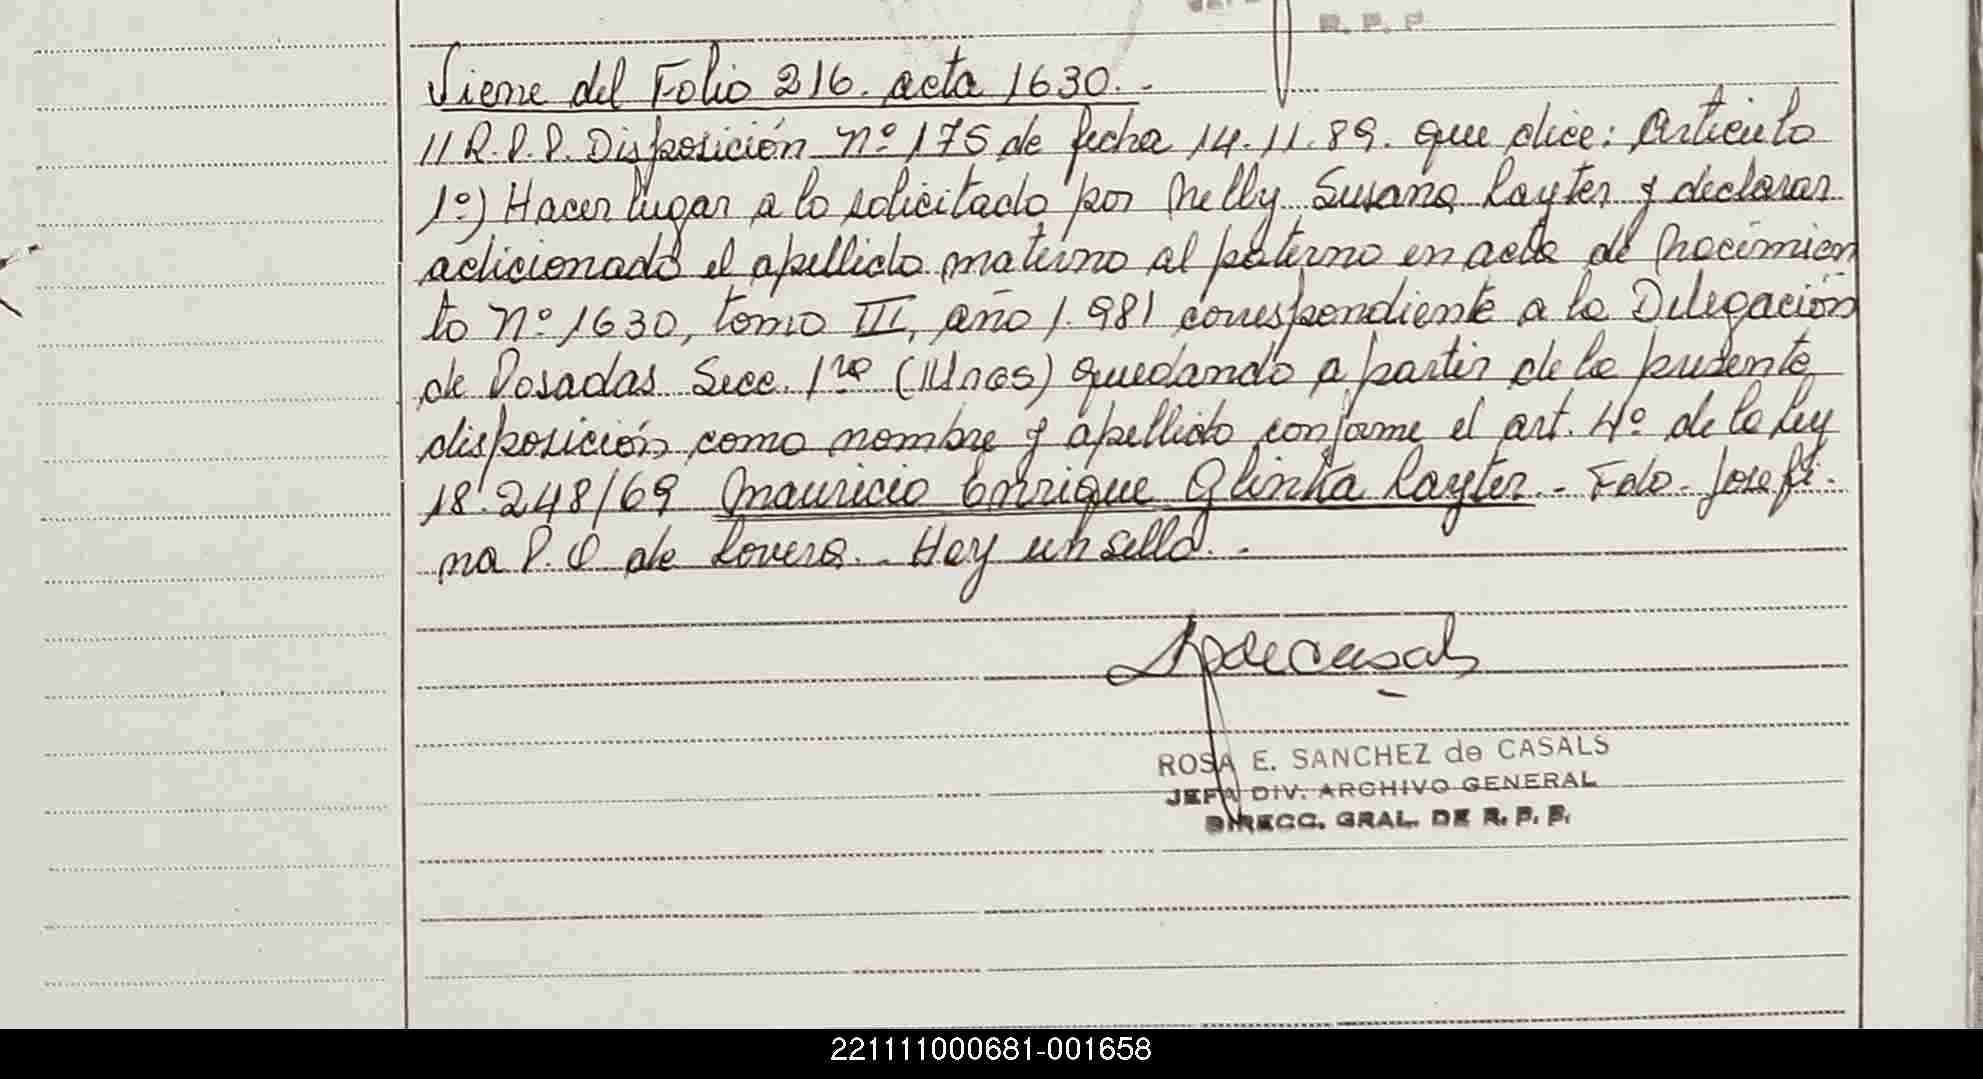 R. P. P.
Viene del Folio 216. acta 1630.-
// R.P.P. Disposición nº 175 de fecha 14.11.89. que dice: Artículo
1º) Hacer lugar a lo solicitado por Nelly Susana Rayter y declarar
adicionado el apellido materno al paterno en acta de nacimien
to nº 1630, tomo III, año 1.981 correspondiente a la Delegación
de Posadas Secc. 1ra (Mnes) quedando a partir de la presente
disposición como nombre y apellido conforme el art. 4º de la ley
18.248/69 Mauricio Enrique Glinka Rayter.- Fdo. Josefi-
na P. O de Lovera.- Hay un sello.-
ROSA E. SANCHEZ de CASALS
JEFA DIV. ARCHIVO GENERAL
DIRECC. GRAL. DE R. P. P.
221111000681-001658